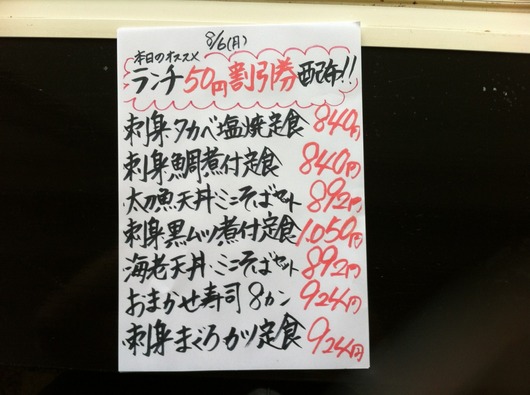 8/6(月)
本日のオススメ
ランチ50円割引券配布!!
刺身タカベ塩焼定食 840円
刺身鯛煮付定食 840円
太刀魚天丼・ミニそばセット 892円
刺身黒ムツ煮付定食 1.050円
海老天丼・ミニそばセット 892円
おまかせ寿司8カン 924円
刺身まぐろカツ定食 924円